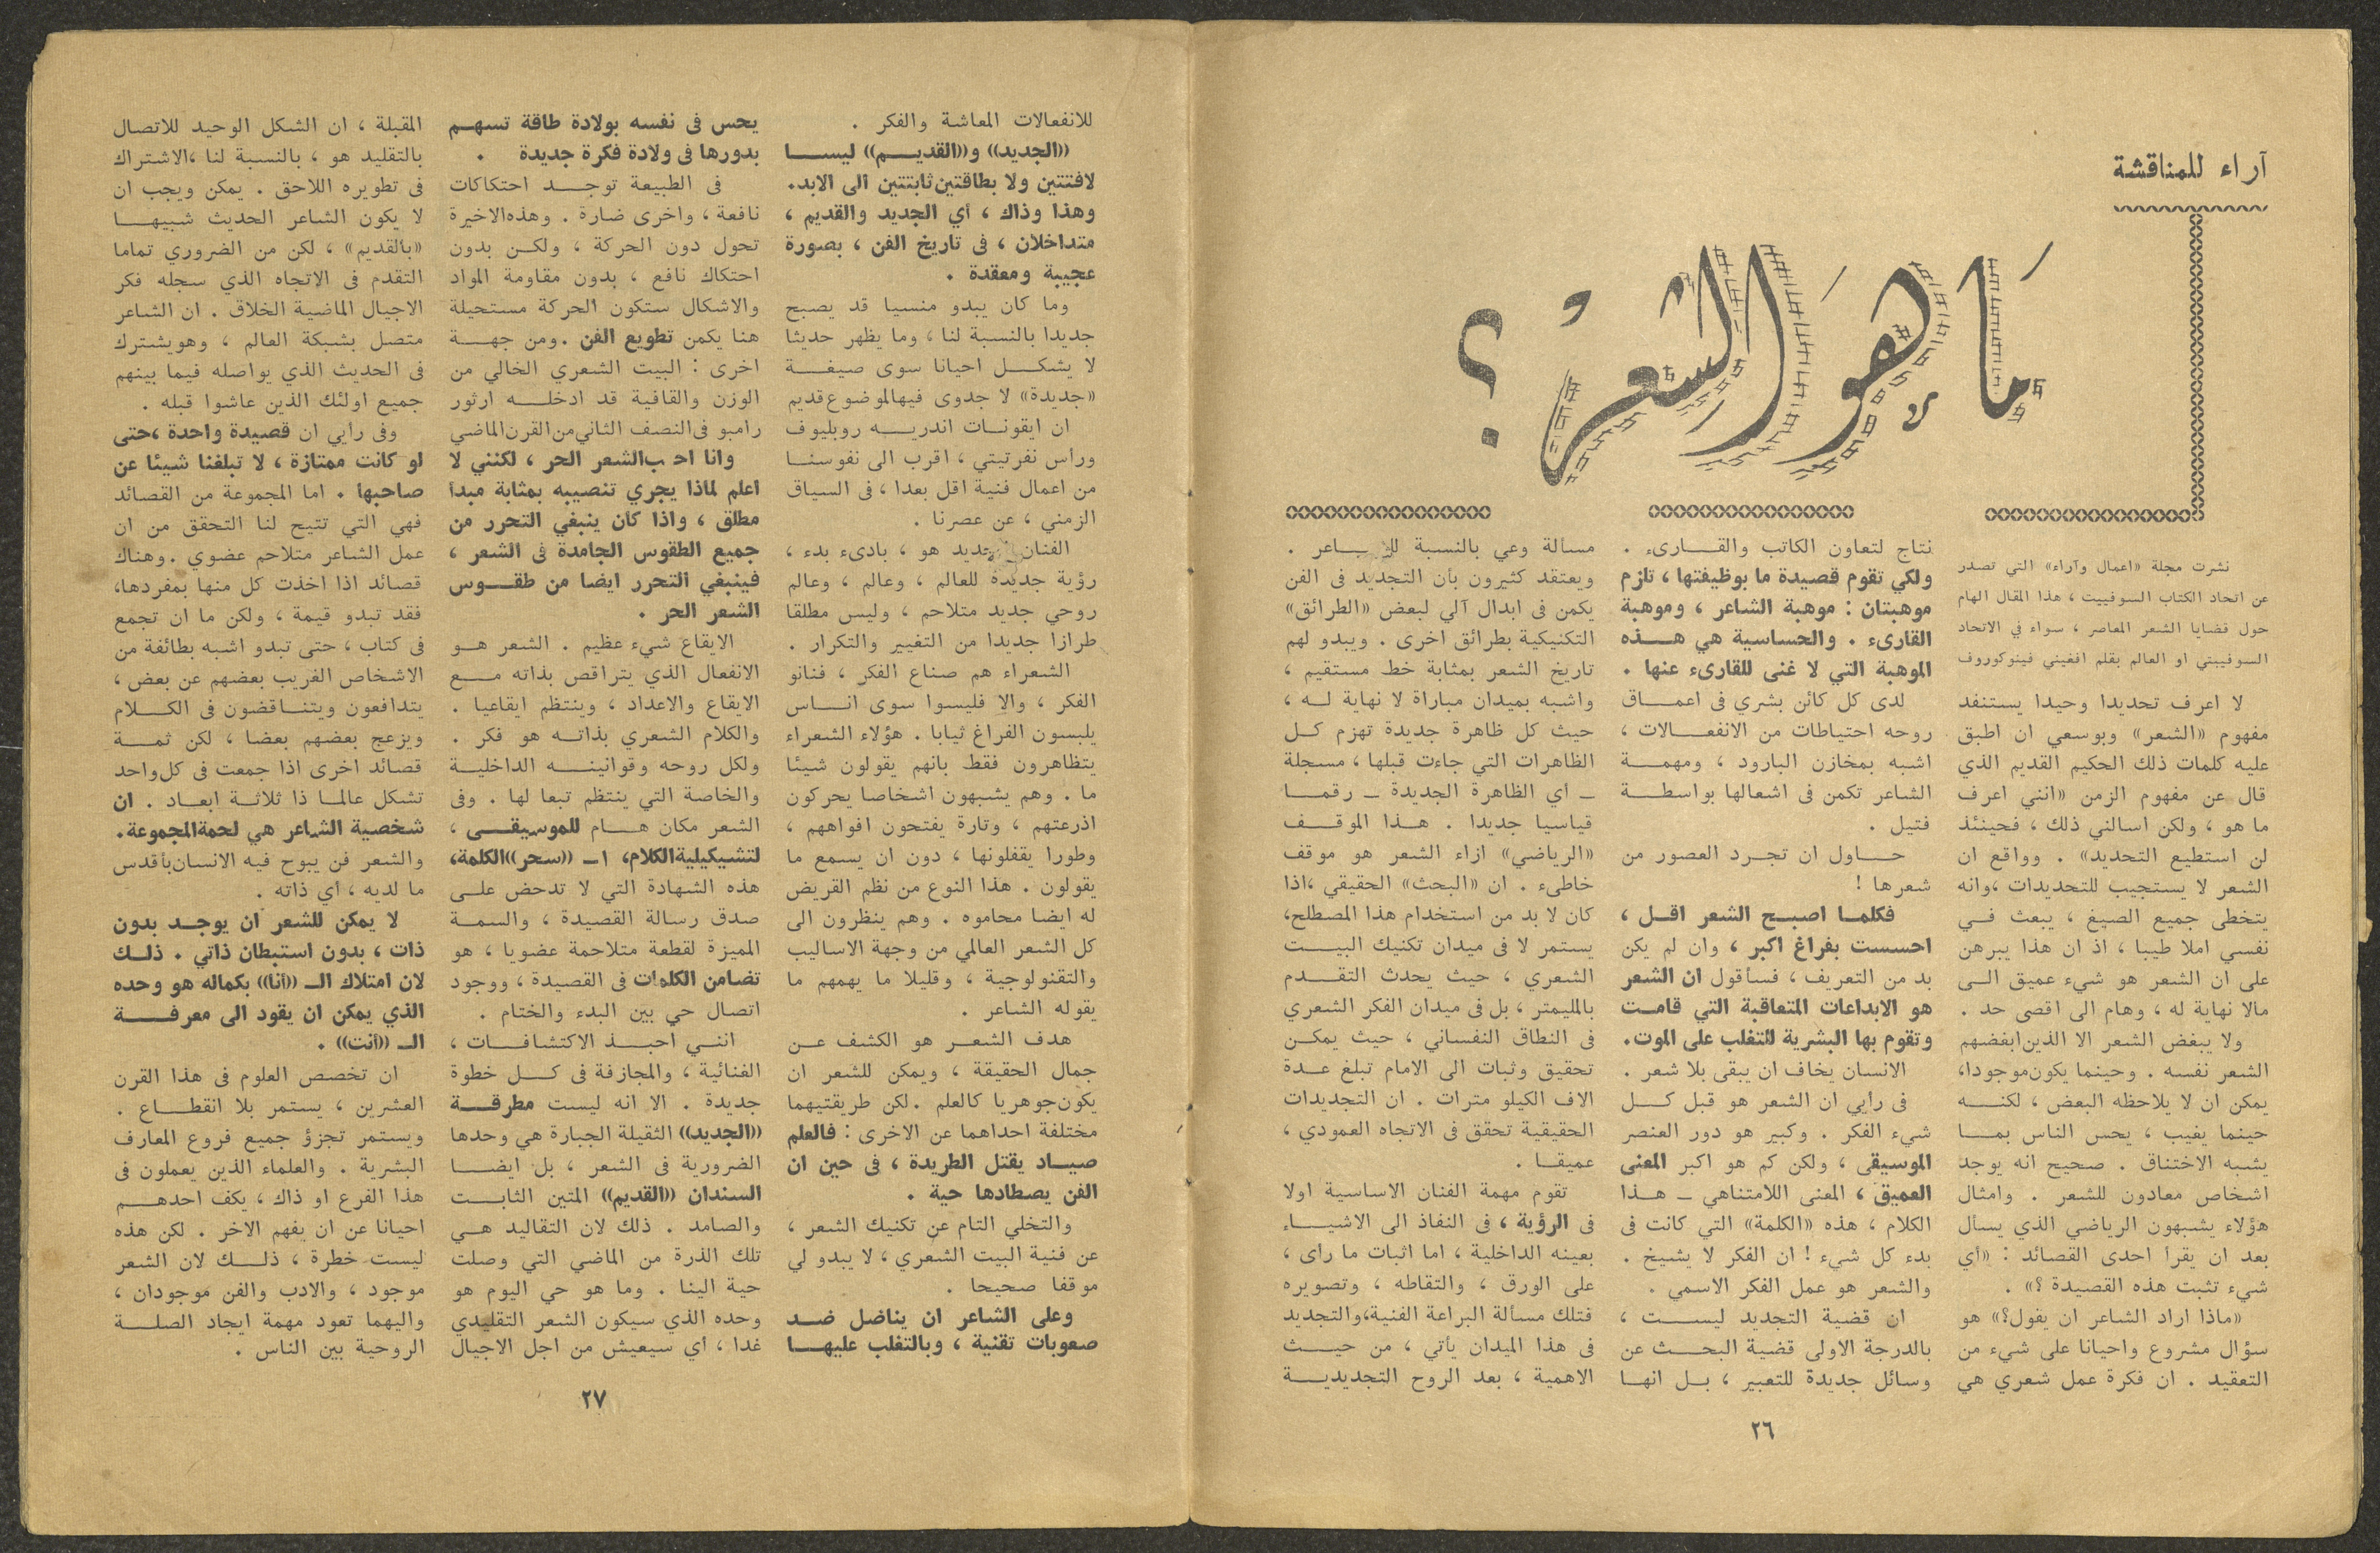 آراء للمناقشة
مَا هُوَ الشِّعْرُ ؟
نشرت مجلة «اعمال وآراء» التي تصدر
عن اتحاد الكتاب السوفييت ، هذا المقال الهام
حول قضايا الشعر المعاصر ، سواء في الاتحاد
السوفييتي او العالم بقلم افغيني فينوكوروف
لا اعرف تحديدا وحيدا يستنفد
مفهوم «الشعر» وبوسعي ان اطبق
عليه كلمات ذلك الحكيم القديم الذي
قال عن مفهوم الزمن «انني اعرف
ما هو ، ولكن اسالني ذلك ، فحينئذ
لن استطيع التحديد» . وواقع ان
الشعر لا يستجيب للتحديدات ،وانه
يتخطى جميع الصيغ ، يبعث فــي
نفسي املا طيبا ، اذ ان هذا يبرهن
على ان الشعر هو شيء عميق الــى
مالا نهاية له ، وهام الى اقصى حد .
ولا يبغض الشعر الا الذين ابغضهم
الشعر نفسه . وحينما يكون موجودا،
يمكن ان لا يلاحظه البعض ، لكنــه
حينما يغيب ، يحس الناس بمــا
يشبه الاختناق . صحيح انه يوجد
اشخاص معادون للشعر . وامثال
هؤلاء يشبهون الرياضي الذي يسأل
بعد ان يقرأ احدى القصائد : «أي
شيء تثبت هذه القصيدة ؟» .
«ماذا اراد الشاعر ان يقول؟» هو
سؤال مشروع واحيانا على شيء من
التعقيد . ان فكرة عمل شعري هي
نتاج لتعاون الكاتب والقــارىء .
ولكي تقوم قصيدة ما بوظيفتها ، تلزم
موهبتان : موهبة الشاعر ، وموهبة
القارىء . والحساسية هي هــذه
الموهبة التي لا غنى للقارىء عنها .
لدى كل كائن بشري فى اعمــاق
روحه احتياطات من الانفعــالات ،
اشبه بمخازن البارود ، ومهمــة
الشاعر تكمن فى اشعالها بواسطــة
فتيل .
حــاول ان تجــرد العصور من
شعرها !
فكلمــا اصبــح الشعر اقــل ،
احسست بفراغ اكبر ، وان لم يكن
بد من التعريف ، فسأقول ان الشعر
هو الابداعات المتعاقبة التي قامــت
وتقوم بها البشرية للتغلب على الموت.
الانسان يخاف ان يبقى بلا شعر .
فى رأيي ان الشعر هو قبل كــل
شيء الفكر . وكبير هو دور العنصر
الموسيقى ، ولكن كم هو اكبر المعنى
العميق ، المعنى اللامتناهي ــ هــذا
الكلام ، هذه «الكلمة» التي كانت فى
بدء كل شيء ! ان الفكر لا يشيخ .
والشعر هو عمل الفكر الاسمي .
ان قضية التجديد ليســت ،
بالدرجة الاولى قضية البحــث عن
وسائل جديدة للتعبير ، بــل انهــا
مسألة وعي بالنسبة للشــاعر .
ويعتقد كثيرون بأن التجديد فى الفن
يكمن فى ابدال آلي لبعض «الطرائق»
التكنيكية بطرائق اخرى . ويبدو لهم
تاريخ الشعر بمثابة خط مستقيم ،
واشبه بميدان مباراة لا نهاية لــه ،
حيث كل ظاهرة جديدة تهزم كــل
الظاهرات التي جاءت قبلها ، مسجلة
ــ اي الظاهرة الجديدة ــ رقمــا
قياسيا جديدا . هــذا الموقــف
«الرياضي» ازاء الشعر هو موقف
خاطىء . ان «البحث» الحقيقي ،اذا
كان لا بد من استخدام هذا المصطلح،
يستمر لا فى ميدان تكنيك البيــت
الشعري ، حيث يحدث التقــدم
بالمليمتر ، بل فى ميدان الفكر الشعري
فى النطاق النفساني ، حيث يمكــن
تحقيق وثبات الى الامام تبلغ عــدة
الاف الكيلو مترات . ان التجديدات
الحقيقية تحقق فى الاتجاه العمودي ،
عميقــا .
تقوم مهمة الفنان الاساسية اولا
فى الرؤية ، فى النفاذ الى الاشيــاء
بعينه الداخلية ، اما اثبات ما رأى ،
على الورق ، والتقاطه ، وتصويره
فتلك مسألة البراعة الفنية،والتجديد
فى هذا الميدان يأتي ، من حيــث
الاهمية ، بعد الروح التجديديــة
٢٦
للانفعالات المعاشة والفكر .
«الجديد» و«القديــم» ليســا
لافتتين ولا بطاقتين ثابتتين الى الابد.
وهذا وذاك ، أي الجديد والقديم ،
متداخلان ، فى تاريخ الفن ، بصورة
عجيبة ومعقدة .
وما كان يبدو منسيا قد يصبح
جديدا بالنسبة لنا ، وما يظهر حديثا
لا يشكــل احيانا سوى صيغــة
«جديدة» لا جدوى فيهالموضوع قديم
ان ايقونــات اندريــه روبليوف
وراس نفرتيتي ، اقرب الى نفوسنــا
من اعمال فنية اقل بعدا ، فى السياق
الزمني ، عن عصرنا .
الفنان الجديد هو ، بادىء بدء ،
رؤية جديدة للعالم ، وعالم ، وعالم
روحي جديد متلاحم ، وليس مطلقا
طرازا جديدا من التغيير والتكرار .
الشعراء هم صناع الفكر ، فنانو
الفكر ، والا فليسوا سوى انــاس
يلبسون الفراغ ثيابا . هؤلاء الشعراء
يتظاهرون فقط بانهم يقولون شيئا
ما . وهم يشبهون اشخاصا يحركون
اذرعتهم ، وتارة يفتحون افواههم ،
وطورا يقفلونها ، دون ان يسمع ما
يقولون . هذا النوع من نظم القريض
له ايضا محاموه . وهم ينظرون الى
كل الشعر العالمي من وجهة الاساليب
والتقنولوجية ، وقليلا ما يهمهم ما
يقوله الشاعر .
هدف الشعــر هو الكشف عــن
جمال الحقيقة ، ويمكن للشعر ان
يكون جوهريا كالعلم .لكن طريقتيهما
مختلفة احداهما عن الاخرى : فالعلم
صيــاد يقتل الطريدة ، فى حين ان
الفن يصطادها حية .
والتخلي التام عن تكنيك الشعر ،
عن فنية البيت الشعري ، لا يبدو لي
موقفا صحيحا .
وعلى الشاعر ان يناضل ضــد
صعوبات تقنية ، وبالتغلب عليهــا
يحس فى نفسه بولادة طاقة تسهــم
بدورها فى ولادة فكرة جديدة .
فى الطبيعة توجــد احتكاكات
نافعة ، واخرى ضارة . وهذه الاخيرة
تحول دون الحركة ، ولكــن بدون
احتكاك نافع ، بدون مقاومة المواد
والاشكال ستكون الحركة مستحيلة
هنا يكمن تطويع الفن .ومن جهــة
اخرى : البيت الشعري الخالي من
الوزن والقافية قد ادخلــه ارثور
رامبو فى النصف الثاني من القرن الماضي
وانا احب الشعر الحر ، لكنني لا
اعلم لماذا يجري تنصيبه بمثابة مبدأ
مطلق ، واذا كان ينبغي التحرر من
جميع الطقوس الجامدة فى الشعر ،
فينبغي التحرر ايضا من طقــوس
الشعر الحر .
الايقاع شيء عظيم . الشعر هــو
الانفعال الذي يتراقص بذاته مــع
الايقاع والاعداد ، وينتظم ايقاعيا .
والكلام الشعري بذاتــه هو فكر .
ولكل روحه وقوانينــه الداخليــة
والخاصة التي ينتظم تبعا لها . وفى
الشعر مكان هــام للموسيقــى ،
لتشيكيلية الكلام، ١ــ «سحر»الكلمة،
هذه الشهادة التي لا تدحض علــى
صدق رسالة القصيدة ، والسمــة
المميزة لقطعة متلاحمة عضويا ، هو
تضامن الكلمات فى القصيدة ، ووجود
اتصال حي بين البدء والختام .
انني احبــذ الاكتشافــات ،
الفنائية ، والمجازفة فى كــل خطوة
جديدة . الا انه ليست مطرقــة
«الجديد» الثقيلة الجبارة هي وحدها
الضرورية فى الشعر ، بل ايضــا
السندان «القديم» المتين الثابــت
والصامد . ذلك لان التقاليد هــي
تلك الذرة من الماضي التي وصلت
حية الينا . وما هو حي اليوم هو
وحده الذي سيكون الشعر التقليدي
غدا ، أي سيعيش من اجل الاجيال
المقبلة ، ان الشكل الوحيد للاتصال
بالتقليد هو ، بالنسبة لنا ،الاشتراك
فى تطويره اللاحق . يمكن ويجب ان
لا يكون الشاعر الحديث شبيهــا
«بالقديم» ، لكن من الضروري تماما
التقدم فى الاتجاه الذي سجله فكر
الاجيال الماضية الخلاق . ان الشاعر
متصل بشبكة العالم ، وهويشترك
فى الحديث الذي يواصله فيما بينهم
جميع اولئك الذين عاشوا قبله .
وفى رايي ان قصيدة واحدة ،حتى
او كانت ممتازة ، لا تبلغنا شيئا عن
صاحبها . اما المجموعة من القصائد
فهي التي تتيح لنا التحقق من ان
عمل الشاعر متلاحم عضوي .وهناك
قصائد اذا اخذت كل منها بمفردها،
فقد تبدو قيمة ، ولكن ما ان تجمع
فى كتاب ، حتى تبدو اشبه بطائفة من
الاشخاص الغريب بعضهم عن بعض ،
يتدافعون ويتنــاقضون فى الكــلام
ويزعج بعضهم بعضا ، لكن ثمــة
قصائد اخرى اذا جمعت فى كل واحد
تشكل عالمــا ذا ثلاثــة ابعــاد . ان
شخصية الشاعر هي لحمة المجموعة.
والشعر فن يبوح فيه الانسان بأقدس
ما لديه ، اي ذاته .
لا يمكن للشعر ان يوجــد بدون
ذات ، بدون استبطان ذاتي . ذلــك
لان امتلاك الــ «أنا» بكماله هو وحده
الذي يمكن ان يقود الى معرفــة
الــ «أنت» .
ان تخصص العلوم فى هذا القرن
العشرين ، يستمر بلا انقطــاع .
ويستمر تجزؤ جميع فروع المعارف
البشرية . والعلماء الذين يعملون فى
هذا الفرع او ذاك ، يكف احدهــم
احيانا عن ان يفهم الاخر . لكن هذه
ليست خطرة ، ذلــك لان الشعر
موجود ، والادب والفن موجودان ،
واليهما تعود مهمة ايجاد الصلــة
الروحية بين الناس .
٢٧